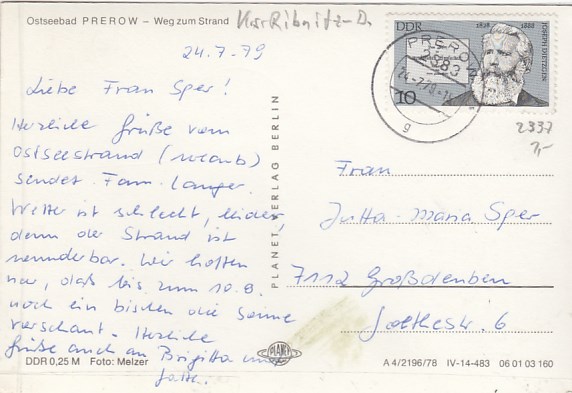 Ostseebad PREROW – Weg zum Strand
Kr Ribnitz-D.
24.7.79
Liebe Frau Sper!
Herzliche Grüße vom
Ostseestrand (Urlaub)
sendet Fam. Langer.
Wetter ist schlecht, leider,
denn der Strand ist
wunderbar. Wir hoffen
nur, daß bis zum 10.8.
noch ein bischen die Sonne
vorschaut. Herzliche
Grüße auch an Brigitta und
DDR 0,25 M Foto: Melzer
PLANET-VERLAG BERLIN
PLANET
DDR
1828 1888
JOSEPH DIETZGEN
10
PREROW
2383
24.-7.79
g
2337
2,-
Frau
Jutta-Maria Sper
7112 Großdeuben
Goethestr. 6
A 4/2196/78 IV-14-483 06 01 03 160